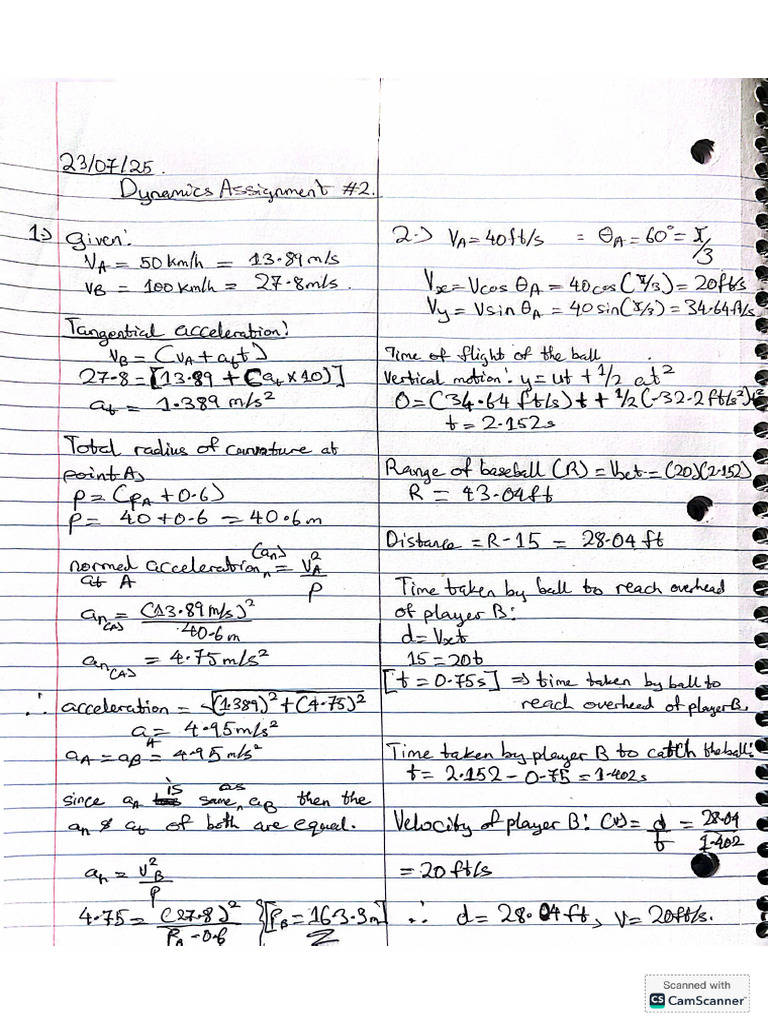 23/07/25.
Dynamics Assignment #2.
1:) Given:
VA = 50 km/h = 13.89 m/s
VB = 100 km/h = 27.8 m/s.
Tangential acceleration:
VB = (VA + att)
27.8 = [13.89 + (at x 10)]
at = 1.389 m/s²
Total radius of curvature at
point A)
ρ = (ρA + 0.6)
ρ = 40 + 0.6 = 40.6 m
normal acceleration (an) = VA²/ρ
at A
an(A) = (13.89 m/s)²/40.6 m
an(A) = 4.75 m/s²
∴ acceleration = √(1.389)² + (4.75)²
aA = 4.95 m/s²
aA = aB = 4.95 m/s²
since aA is same as aB then the
an & at of both are equal.
an = VB²/ρ
4.75 = (27.8)²/ρB - 0.6 } [ρB = 163.3 m]
2:) VA = 40 ft/s = θA = 60° = π/3
Vx = Vcos θA = 40 cos(π/3) = 20 ft/s
Vy = Vsin θA = 40 sin(π/3) = 34.64 ft/s
Time of flight of the ball
Vertical motion: y = ut + 1/2 at²
0 = (34.64 ft/s)t + 1/2(-32.2 ft/s²)t²
t = 2.152 s
Range of baseball (R) = Vxt = (20)(2.152)
R = 43.04 ft
Distance = R - 15 = 28.04 ft
Time taken by ball to reach overhead
of player B:
d = Vxt
15 = 20t
[t = 0.75 s] ⇒ time taken by ball to
reach overhead of player B.
Time taken by player B to catch the ball:
t = 2.152 - 0.75 = 1.402 s
Velocity of player B: (V) = d/t = 28.04/1.402
= 20 ft/s
∴ d = 28.04 ft, V = 20 ft/s.
Scanned with
CS CamScanner